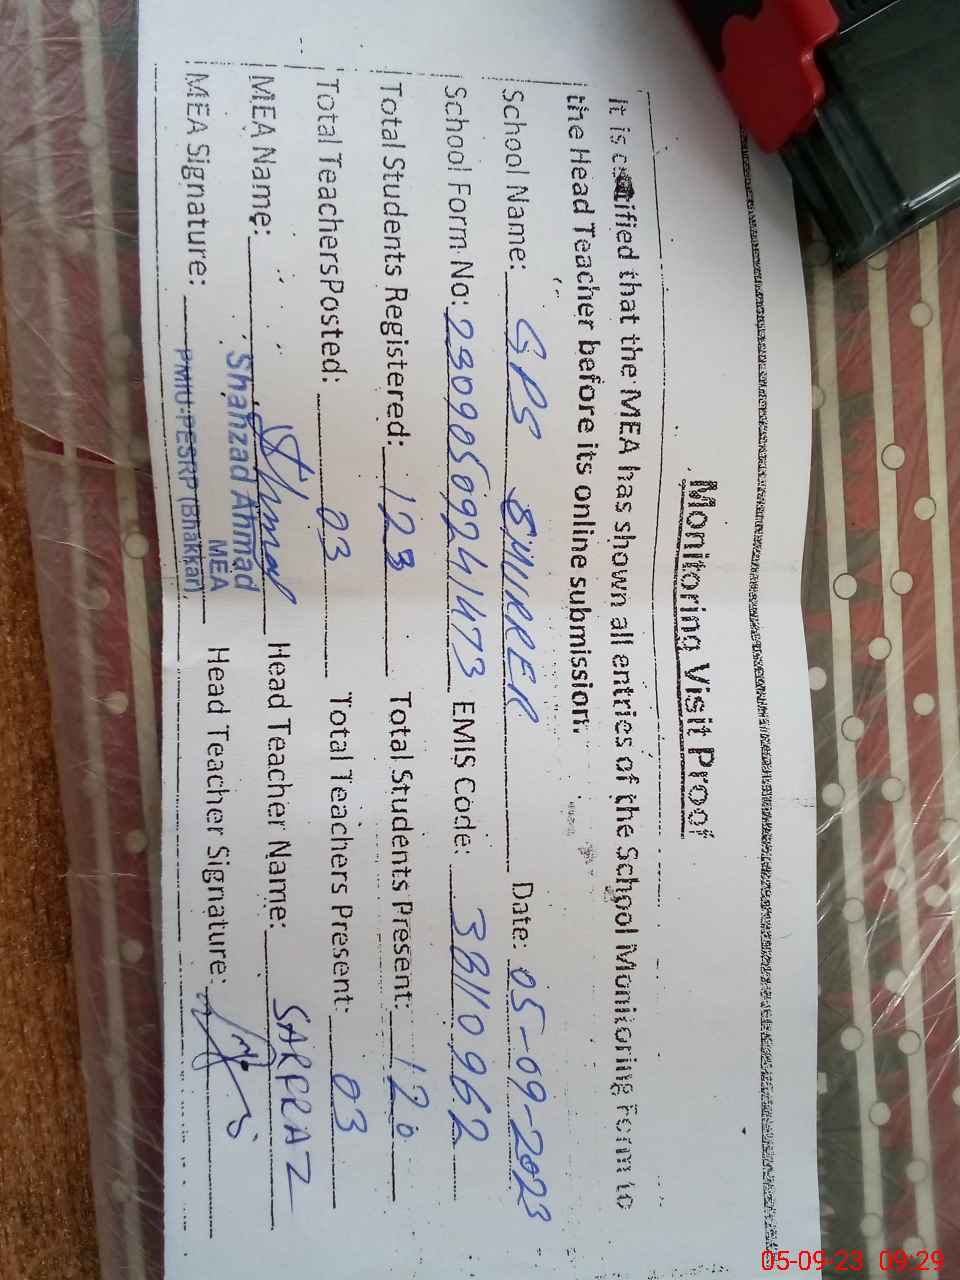 Monitoring Visit Proof
It is certified that the MEA has shown all entries of the School Monitoring Form to
the Head Teacher before its online submission.
School Name: GPS SHIRRER Date: 05-09-2023
School Form No: 23090509241473 EMIS Code: 38110962
Total Students Registered: 123 Total Students Present: 120
Total Teachers Posted: 03 Total Teachers Present: 03
MEA Name: Ahmad Head Teacher Name: SARFRAZ
Shahzad Ahmad
MEA
MEA Signature: PMIU-PESRP (Bhakkar) Head Teacher Signature:
05-09-23 09:29